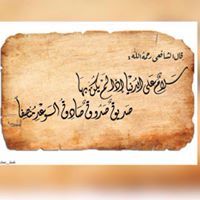 قال الشافعي رحمه الله:
سلام على الدنيا إذا لم يكن بها
صديق صدوق صادق الوعد منصفا